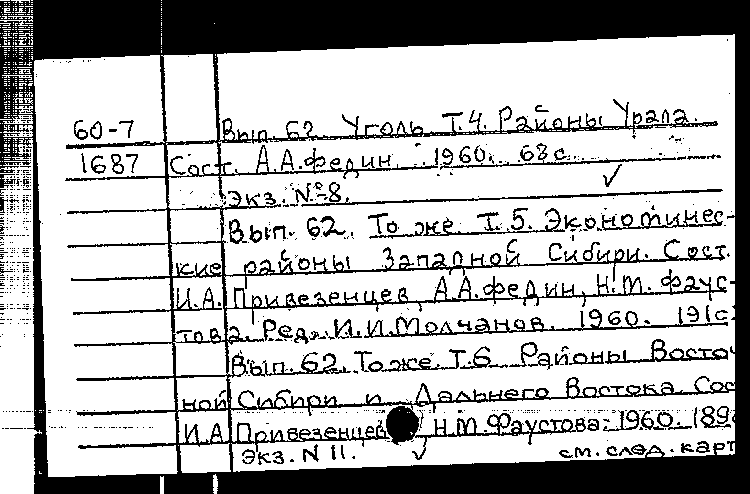 60-7 Вып. 62. Уголь Т.4. Районы Урала.
1687 Сост. А.А.Федин. 1960. 68с.
Экз. №8. ✓
Вып. 62. То же. Т.5. Экономичес-
кие районы Западной Сибири. Сост.
И.А. Привезенцев, А.А.Федин, Н.М. Фаус-
това. Ред. И.И.Молчанов. 1960. 191с.
Вып. 62. То же. Т.6 Районы Восточ
ной Сибири и Дальнего Востока. Сос
И.А Привезенцев Н.М.Фаустова. 1960. 189
Экз. N 11. ✓ см. след. карт